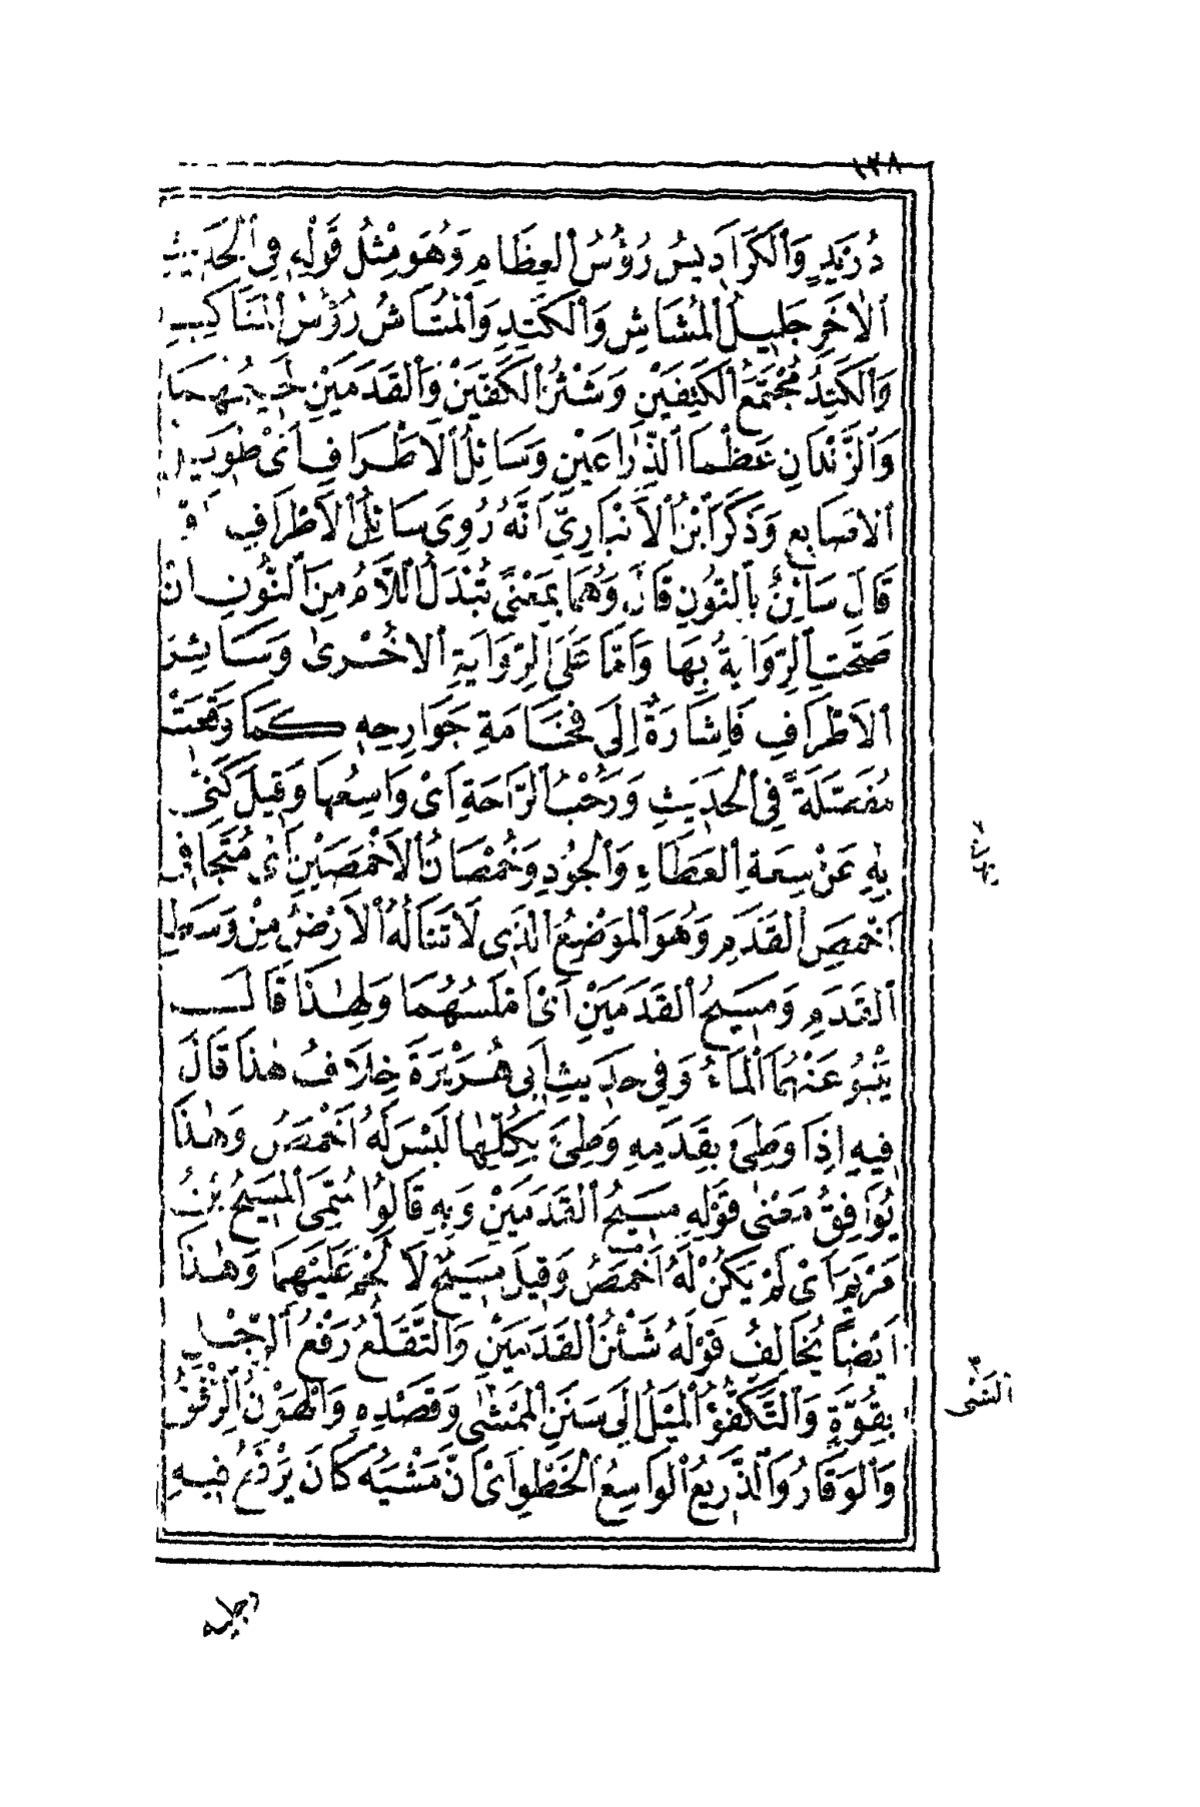 ١٢٨
دُرَيْدٍ وَالْكَرَادِيسُ رُؤُسُ الْعِظَامِ وَهُوَ مِثْلُ قَوْلِهِ فِي الْحَدِيثِ
الْآخَرِ جَلِيلُ الْمُشَاشِ وَالْكَتَدِ وَالْمُشَاشُ رُؤُسُ الْمَنَاكِبِ
وَالْكَتَدُ مُجْتَمَعُ الْكَتِفَيْنِ وَشَثْنُ الْكَفَّيْنِ وَالْقَدَمَيْنِ لَحِيمُهُمَا
وَالزَّنْدَانِ عَظْمَا الذِّرَاعَيْنِ وَسَائِلُ الْأَطْرَافِ أَىْ طَوِيلُ
الْأَصَابِعِ وَذَكَرَ ابْنُ الْأَنْبَارِيِّ أَنَّهُ رُوِىَ سَائِلُ الْأَطْرَافِ
قَالَ سَائِنٌ بِالنُّونِ قَالَ وَهُمَا بِمَعْنًى تُبْدَلُ اللَّامُ مِنَ النُّونِ إِنْ
صَحَّتِ الرِّوَايَةُ بِهَا وَأَمَّا عَلَى الرِّوَايَةِ الْأُخْرَى وَسَائِرُ
الْأَطْرَافِ فَإِشَارَةٌ إِلَى فَخَامَةِ جَوَارِحِهِ كَمَا وَقَعَتْ
مُفَصَّلَةً فِي الْحَدِيثِ وَرَحْبُ الرَّاحَةِ أَىْ وَاسِعُهَا وَقِيلَ كَنَى
بِهِ عَنْ سِعَةِ الْعَطَاءِ وَالْجُودِ وَخُمْصَانُ الْأَخْمَصَيْنِ أَىْ مُتَجَافِي
أَخْمَصِ الْقَدَمِ وَهُوَ الْمَوْضِعُ الَّذِي لَا تَنَالُهُ الْأَرْضُ مِنْ وَسَطِ
الْقَدَمِ وَمَسِيحُ الْقَدَمَيْنِ أَىْ أَمْلَسُهُمَا وَلِهٰذَا قَالَ
يَنْبُو عَنْهُمَا الْمَاءُ وَفِي حَدِيثِ أَبِي هُرَيْرَةَ خِلَافُ هٰذَا قَالَ
فِيهِ إِذَا وَطِئَ بِقَدَمِهِ وَطِئَ بِكُلِّهَا لَيْسَ لَهُ أَخْمَصُ وَهٰذَا
يُوَافِقُ مَعْنَى قَوْلِهِ مَسِيحُ الْقَدَمَيْنِ وَبِهِ قَالُوا سُمِّيَ الْمَسِيحُ بْنُ
مَرْيَمَ أَىْ لَمْ يَكُنْ لَهُ أَخْمَصُ وَقِيلَ مَسِيحٌ لَا لَحْمَ عَلَيْهِمَا وَهٰذَا
أَيْضًا يُخَالِفُ قَوْلَهُ شَثْنُ الْقَدَمَيْنِ وَالتَّقَلُّعُ رَفْعُ الرِّجْلِ
بِقُوَّةٍ وَالتَّكَفُّؤُ الْمَيْلُ إِلَى سَنَنِ الْمَمْشَى وَقَصْدِهِ وَالْهَوْنُ الرِّفْقُ
الْمَشْىِ
وَالْوَقَارُ وَالذَّرِيعُ الْوَاسِعُ الْخَطْوِ أَىْ أَنَّ مَشْيَهُ كَانَ يَرْفَعُ فِيهِ
رجليه